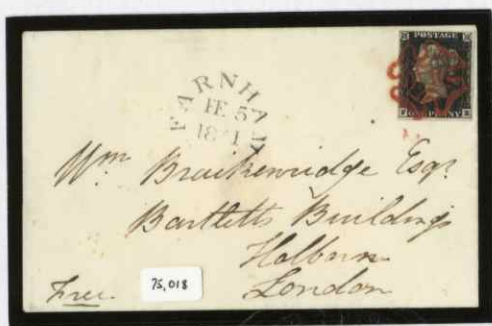 POSTAGE
ONE PENNY
FARNHAM
FE 5
1841
Wm Braikenridge Esqr
Bartletts Buildings
Holborn
London
Free
75,018